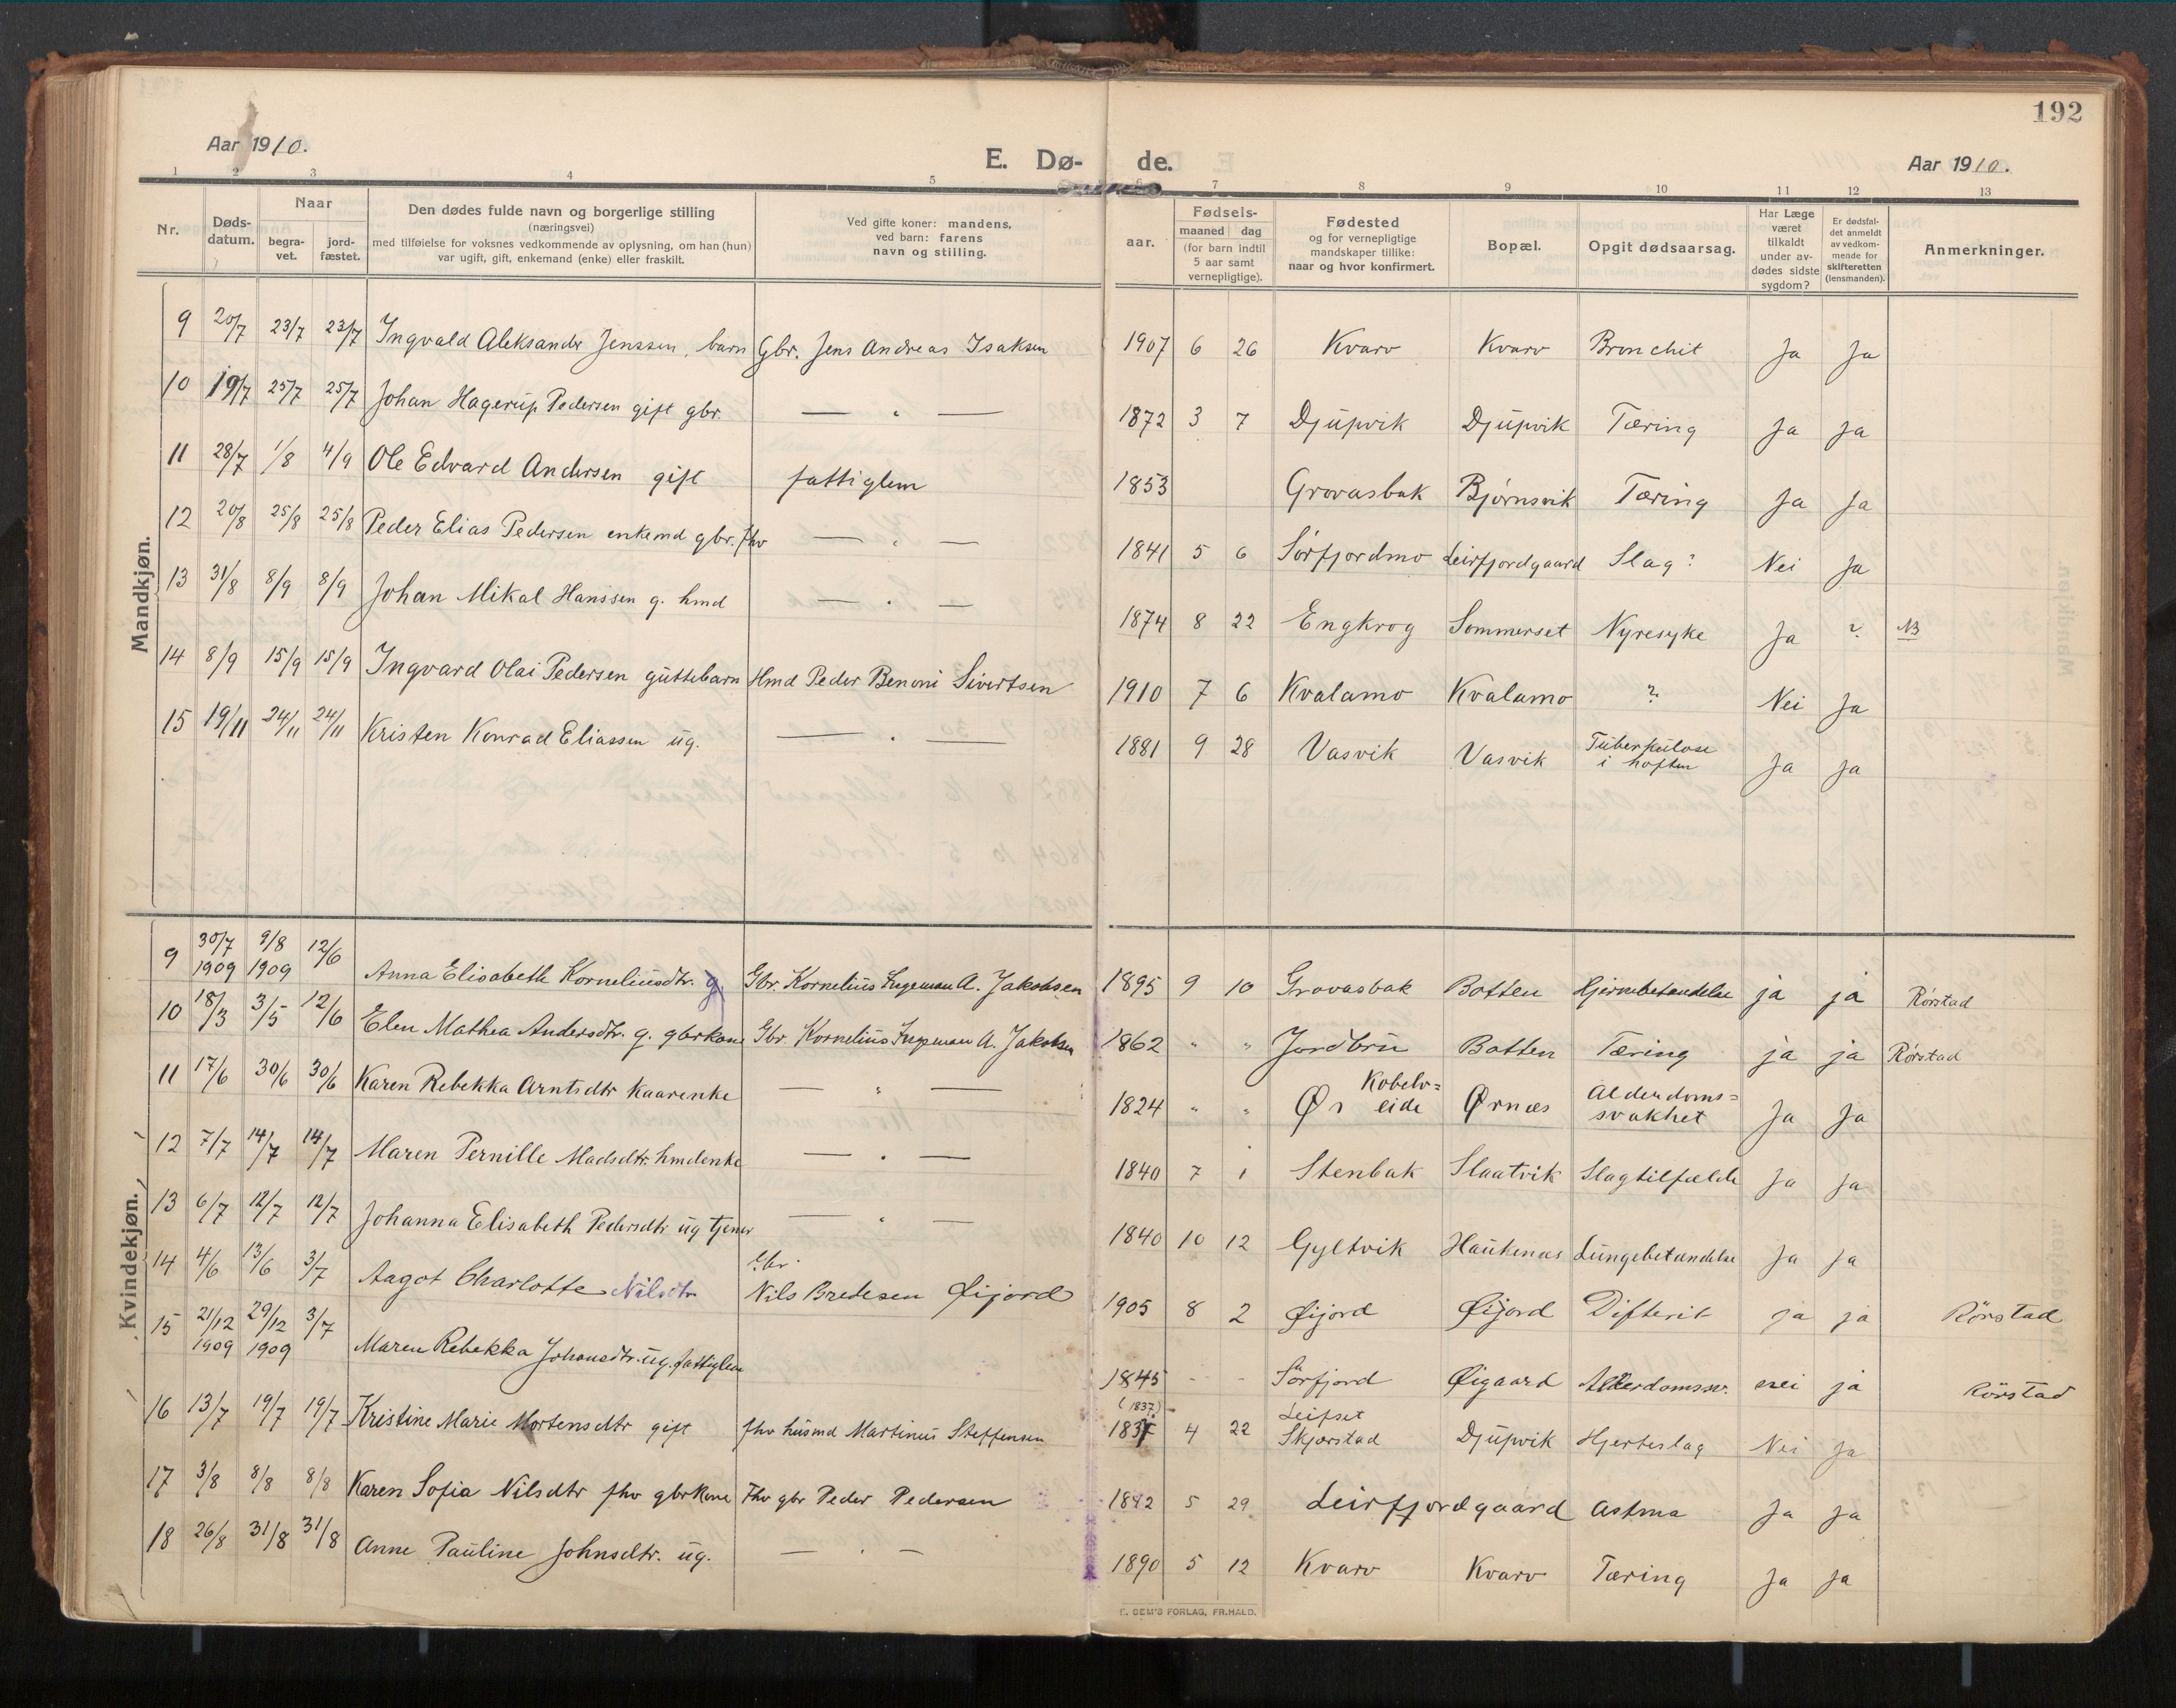 192
Aar 1910.
E. Dø- de.
Aar 1910.
1 2 3 4 5 6 7 8 9 10 11 12 13
Nr.
Dødsdatum.
Naar
begravet.
jordfæstet.
Den dødes fulde navn og borgerlige stilling
(næringsvei)
med tilføielse for voksnes vedkommende av oplysning, om han (hun)
var ugift, gift, enkemand (enke) eller fraskilt.
Ved gifte koner: mandens,
ved barn: farens
navn og stilling.
aar.
Fødsels-
maaned dag
(for barn indtil
5 aar samt
vernepligtige).
Fødested
og for vernepligtige
mandskaper tillike:
naar og hvor konfirmert.
Bopæl.
Opgit dødsaarsag.
Har Læge
været
tilkaldt
under av-
dødes sidste
sygdom?
Er dødsfal-
det anmeldt
av vedkom-
mende for
skifteretten
(lensmanden).
Anmerkninger.
Mandkjøn.
9 20/7 23/7 23/7 Ingvald Aleksander Jenssen, barn Gbr. Jens Andreas Isaksen 1907 6 26 Kvarv Kvarv Bronchit Ja Ja
10 19/7 25/7 25/7 Johan Hagerup Pedersen gift gbr. — " — 1872 3 7 Djupvik Djupvik Tæring Ja Ja
11 28/7 1/8 4/9 Ole Edvard Andersen gift fattiglem 1853 Grovasbak Bjørnsvik Tæring Ja Ja
12 20/8 25/8 25/8 Peder Elias Pedersen enkemd gbr. fhv — " — 1841 5 6 Sørfjordmo Leirfjordgaard Slag? Nei Ja
13 31/8 8/9 8/9 Johan Mikal Hanssen g. hmd — " — 1874 8 22 Engkrog Sommerset Nyresyke Ja ? NB
14 8/9 15/9 15/9 Ingvard Olai Pedersen guttebarn Hmd Peder Benoni Sivertsen 1910 7 6 Kvalamo Kvalamo ? Nei Ja
15 19/11 24/11 24/11 Kristen Konrad Eliassen ug. — " — 1881 9 28 Vasvik Vasvik Tuberkulose i hoften Ja Ja
Kvindekjøn.
9 30/7 1909 9/8 1909 12/6 Anna Elisabeth Korneliusdtr. g. Gbr. Kornelius Ingeman A. Jakobsen 1895 9 10 Grovasbak Botten Hjernebetændelse ja ja Rørstad
10 18/3 3/5 12/6 Elen Mathea Andersdtr. g. gbrkone Gbr. Kornelius Ingeman A. Jakobsen 1862 " " Jordbru Botten Tæring ja ja Rørstad
11 17/6 30/6 30/6 Karen Rebekka Arntsdtr kaarenke — " — 1824 " " Kobelv=eide Ørnæs Alderdoms=svakhet Ja Ja
12 7/7 14/7 14/7 Maren Pernille Madsdtr. hmdenke — " — 1840 7 1 Stenbak Slaatvik Slagtilfælde Ja Ja
13 6/7 12/7 12/7 Johanna Elisabeth Pedersdtr ug tjener — " — 1840 10 12 Gyltvik Haukenæs Lungebetændelse Ja Ja
14 4/6 13/6 3/7 Aagot Charlotte Nilsdtr. Gbr. Nils Bredesen Øijord 1905 8 2 Øijord Øijord Difterit ja ja Rørstad
15 21/12 1909 29/12 1909 3/7 Maren Rebekka Johansdtr. ug. fattiglem 1845 - - Sørfjord Øigaard Alderdomssv. nei ja Rørstad
16 13/7 19/7 19/7 Kristine Marie Mortensdtr gift fhv husmd Martinus Steffensen (1837) 1837 4 22 Leifset Skjærstad Djupvik Hjerteslag Nei Ja
17 3/8 8/8 8/8 Karen Sofia Nilsdtr fhv gbrkone Fhv gbr Peder Pedersen 1842 5 29 Leirfjordgaard Astma Ja Ja
18 26/8 31/8 31/8 Anne Pauline Johnsdtr. ug. — " — 1890 5 12 Kvarv Kvarv Tæring Ja Ja
E. SEM'S FORLAG, FR.HALD.